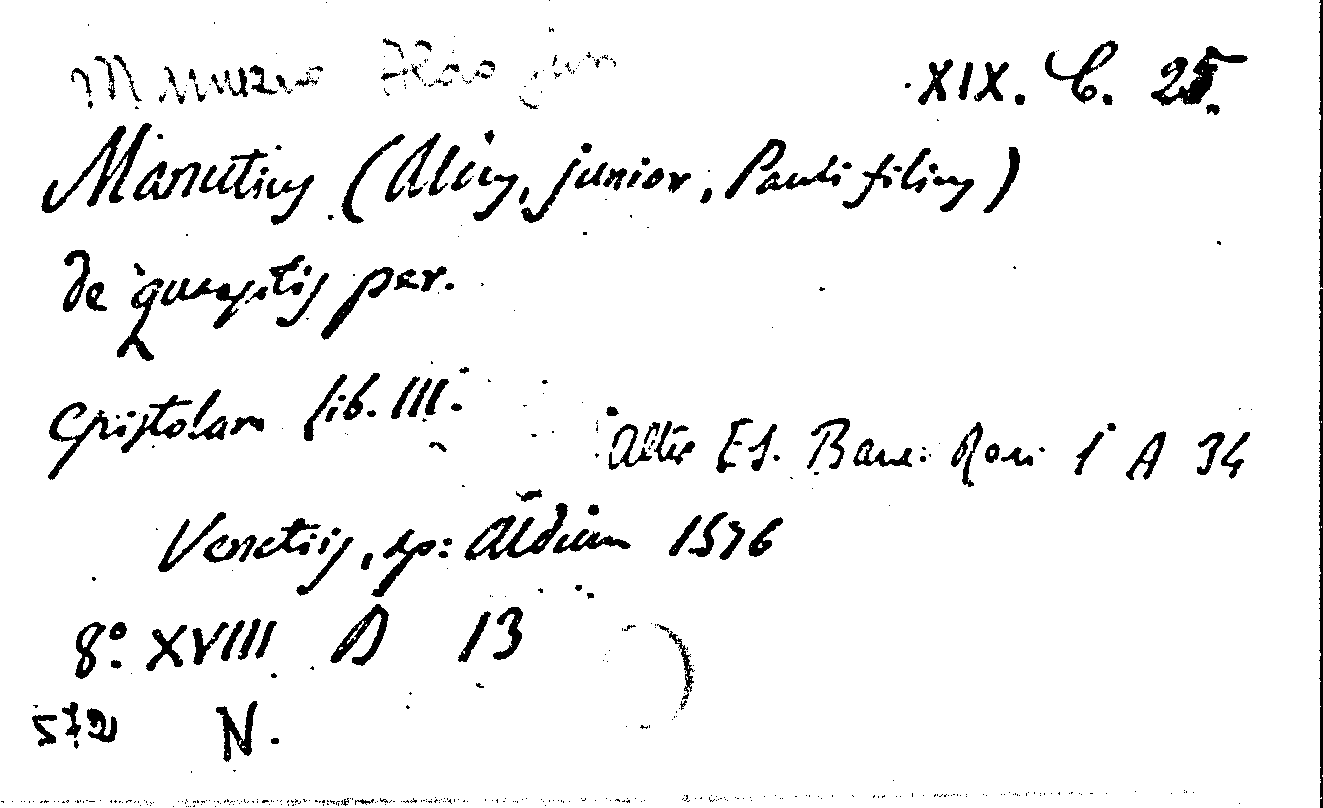 Manuzio Aldo jun
XIX. C. 25.
Manutius (Aldus, junior, Pauli filius)
de quaesitis per.
Epistolam lib. III.
Altro Es. Banc. Rari 1 A 34
Venetiis, ap: Aldum 1576
8º. XVIII D 13
572 N.